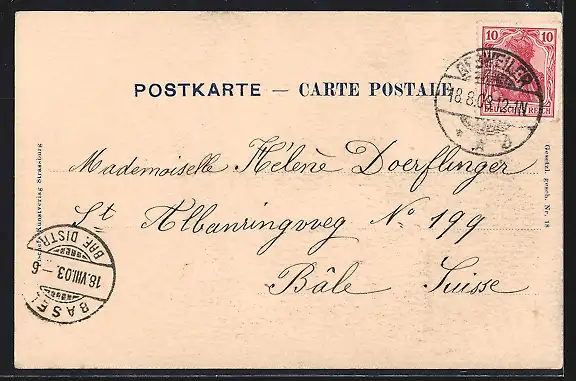 POSTKARTE — CARTE POSTALE
10 10
DEUTSCHES REICH
GEBWEILER
18.8.03.12-1N
Mademoiselle Hélène Doerflinger
St Albanringweg No 199
Bâle Suisse
Kunstverlag Strassburg
Gesetzl. gesch. Nr. 18
BRF. DISTR.
18.VIII.03.–6
BASEL